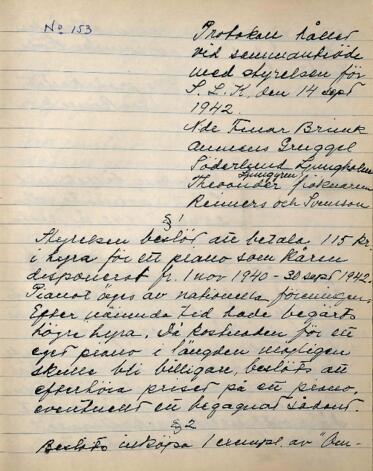 No 153
Protokoll hållet
vid sammanträde
med styrelsen för
S. L. K. den 14 sept
1942.
Nde Einar Brunk
Gruggel
Söderlund Ljungholm
Ljunggren
Theorander fröknarna
Reimers och Svensson
§ 1
Styrelsen beslöt att betala 115 kr.
i hyra för ett piano som kåren
disponerat fr. 1 nov 1940 - 30 sept 1942.
Pianot ägs av nationella föreningen.
Efter nämnda tid hade begärts
högre hyra. Då kostnaden för ett
eget piano i längden möjligen
skulle bli billigare, beslöts att
efterhöra priset på ett piano,
eventuellt en begagnat sådant.
§ 2
Beslöts inköpa 1 exempl. av "Om-